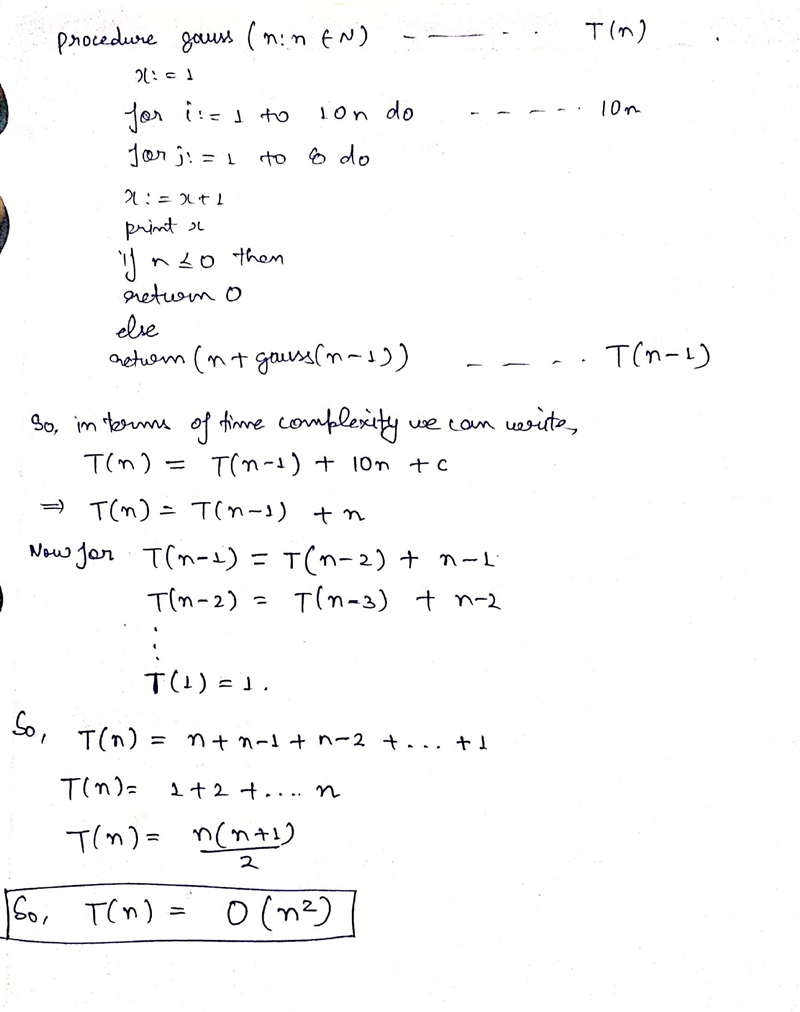 procedure gauss (n: n ∈ N) - — — - . . T(n) .
x: = 1
for i: = 1 to 10n do - - - - - . . 10n
for j: = 1 to 8 do
x : = x + 1
print x
if n ≤ 0 then
return 0
else
return (n + gauss(n-1)) — — . - . T(n-1)
So, in terms of time complexity we can write,
T(n) = T(n-1) + 10n + c
⇒ T(n) = T(n-1) + n
Now for T(n-1) = T(n-2) + n-1
T(n-2) = T(n-3) + n-2
⋮
T(1) = 1.
So, T(n) = n + n-1 + n-2 + ... + 1
T(n) = 1 + 2 + .... n
T(n) = n(n+1)/2
So, T(n) = O(n²)